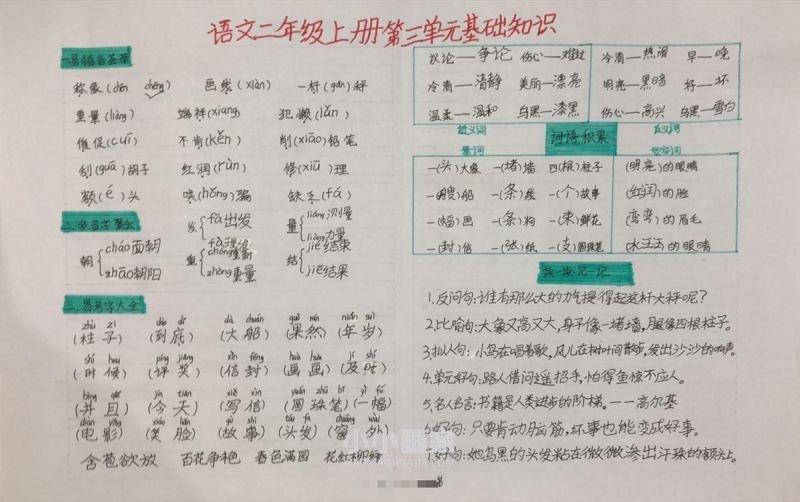 语文二年级上册第三单元基础知识
一.易错音荟萃
称象(chèn chēng) 画线(xiàn) 一杆(gǎn)秤
重量(liàng) 端祥(xiang) 犯懒(lǎn)
催促(cuī) 不肯(kěn) 削(xiāo)铅笔
刮(guā)胡子 红润(rùn) 修(xiū)理
额(é)头 哄(hǒng)骗 缺乏(fá)
二.多音字
朝 cháo面朝 zhāo朝阳
发 fā出发 fà理发
重 chóng重新 zhòng重量
量 liáng测量 liàng力量
结 jié结束 jiē结果
三.易考字大全
zhù zi dào dǐ dà chuán guǒ rán nián suì
(柱子) (到底) (大船) (果然) (年岁)
shí hou píng jiǎng xìn fēng huà huà jí shí
(时候) (评奖) (信封) (画画) (及时)
bìng qiě jīn tiān xiě xìn yuán zhū bǐ yì fú
(并且) (今天) (写信) (圆珠笔) (一幅)
diàn yǐng xiào liǎn gù shi tóu fa chuāng wài
(电影) (笑脸) (故事) (头发) (窗外)
含苞欲放 百花争艳 春色满园 花红柳绿
议论—争论 伤心—难过
冷清—清静 美丽—漂亮
温柔—温和 乌黑—漆黑
近义词
冷清—热闹 早—晚
明亮—黑暗 好—坏
伤心—高兴 乌黑—雪白
反义词
词语积累
量词
一(头)大象 一(堵)墙 四(根)柱子
一(艘)船 一(条)线 一(个)故事
一(幅)画 一(条)狗 一(束)鲜花
一(封)信 一(张)纸 一(支)圆珠笔
(明亮)的眼睛
(红润)的脸
(弯弯)的眉毛
(水汪汪)的眼睛
读一读记一记
1.反问句:谁有那么大的力气提得起这杆大秤呢?
2.比喻句:大象又高又大,身子像一堵墙,腿像四根柱子。
3.拟人句:小鸟在唱着歌,风儿在树叶间散步,发出沙沙的响声。
4.单元好句:路人借问遥招手,怕得鱼惊不应人。
5.名人名言:书籍是人类进步的阶梯。——高尔基
6.好句:只要肯动脑筋,坏事也能变成好事。
7.好句:她乌黑的头发粘在微微渗出汗珠的额头上。